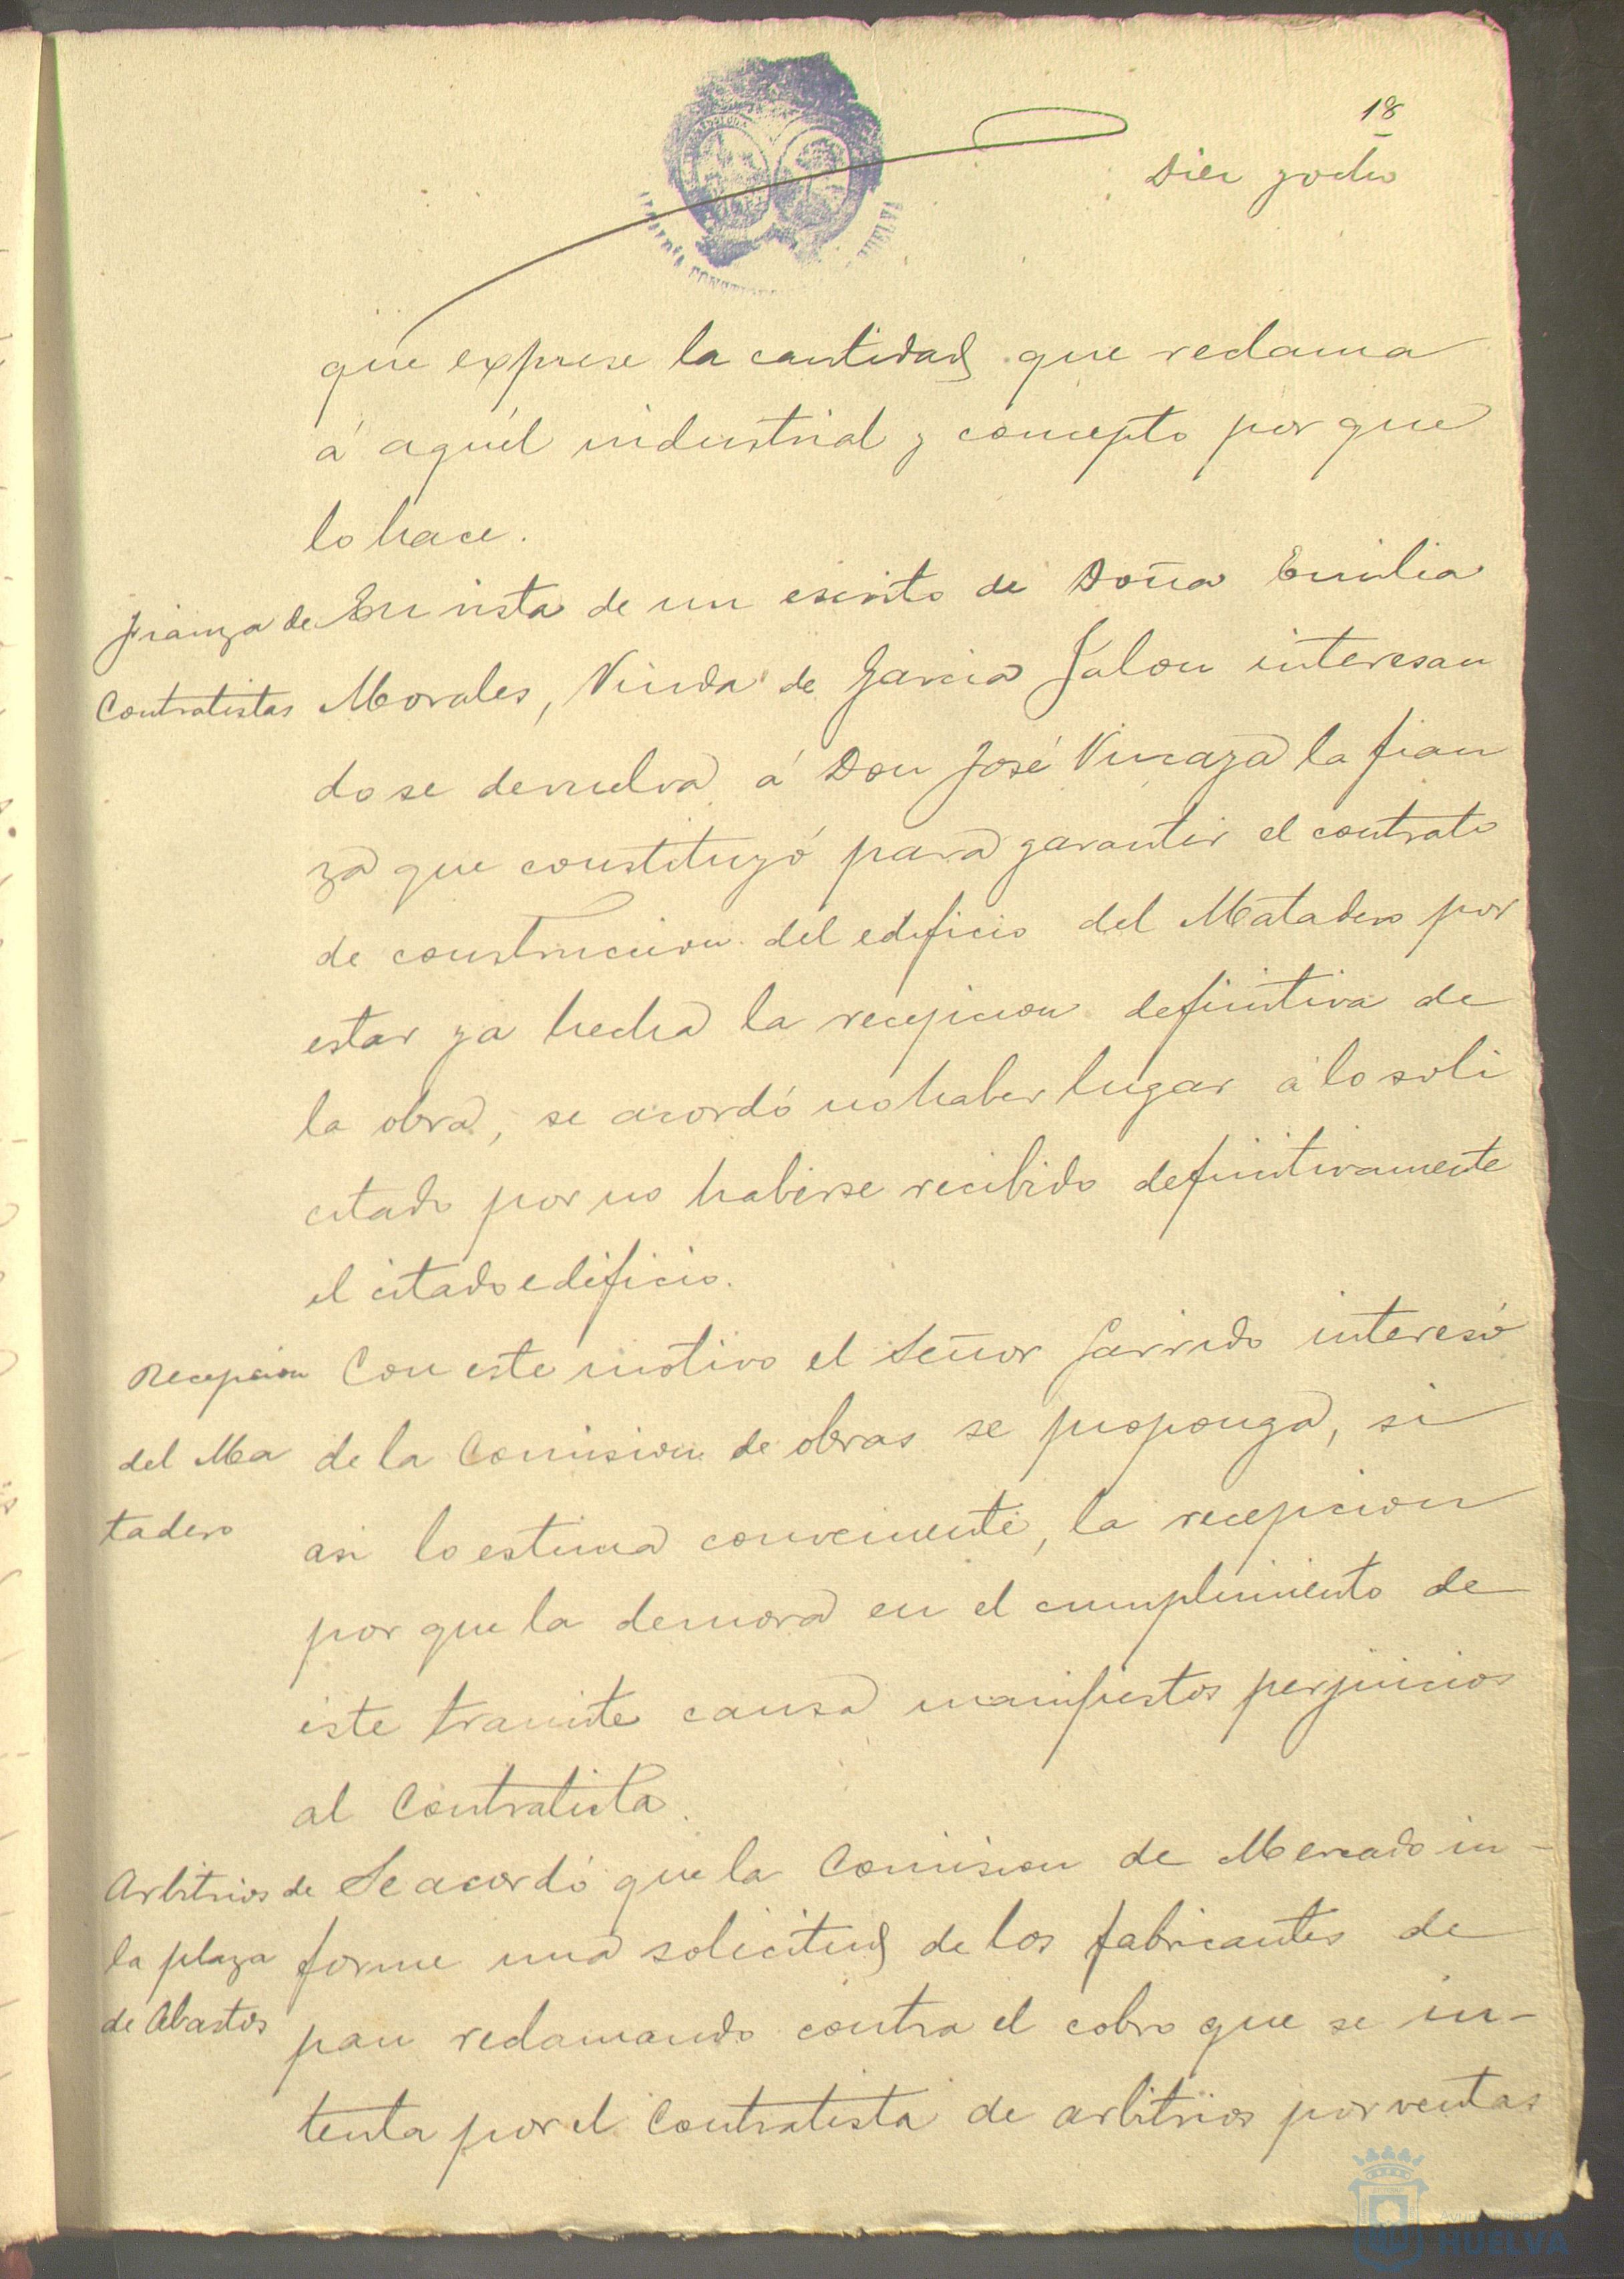 18
Diez y ocho
ALCALDÍA CONSTITUCIONAL HUELVA
que exprese la cantidad que reclama
á aquél industrial y concepto por que
lo hace.
Fianza de En vista de un escrito de Doña Emilia
Contratistas Morales, Viuda de Garcia Jalon interesan
do se devuelva á Don José Vincaza la fian
za que constituyó para garantir el contrato
de construccion del edificio del Matadero por
estar ya hecha la recepcion definitiva de
la obra, se acordó no haber lugar á lo soli
citado por no haberse recibido definitivamente
el citado edificio.
Recepcion Con este motivo el Señor Garrido interesó
del Ma de la Comision de obras se proponga, si
tadero asi lo estima conveniente, la recepcion
por que la demora en el cumplimiento de
este tramite causa manifiestos perjuicios
al Contratista.
Arbitrios de Se acordó que la Comision de Mercado in-
la plaza forme una solicitud de los fabricantes de
de Abastos pan reclamando contra el cobro que se in-
tenta por el Contratista de arbitrios por ventas
HUELVA